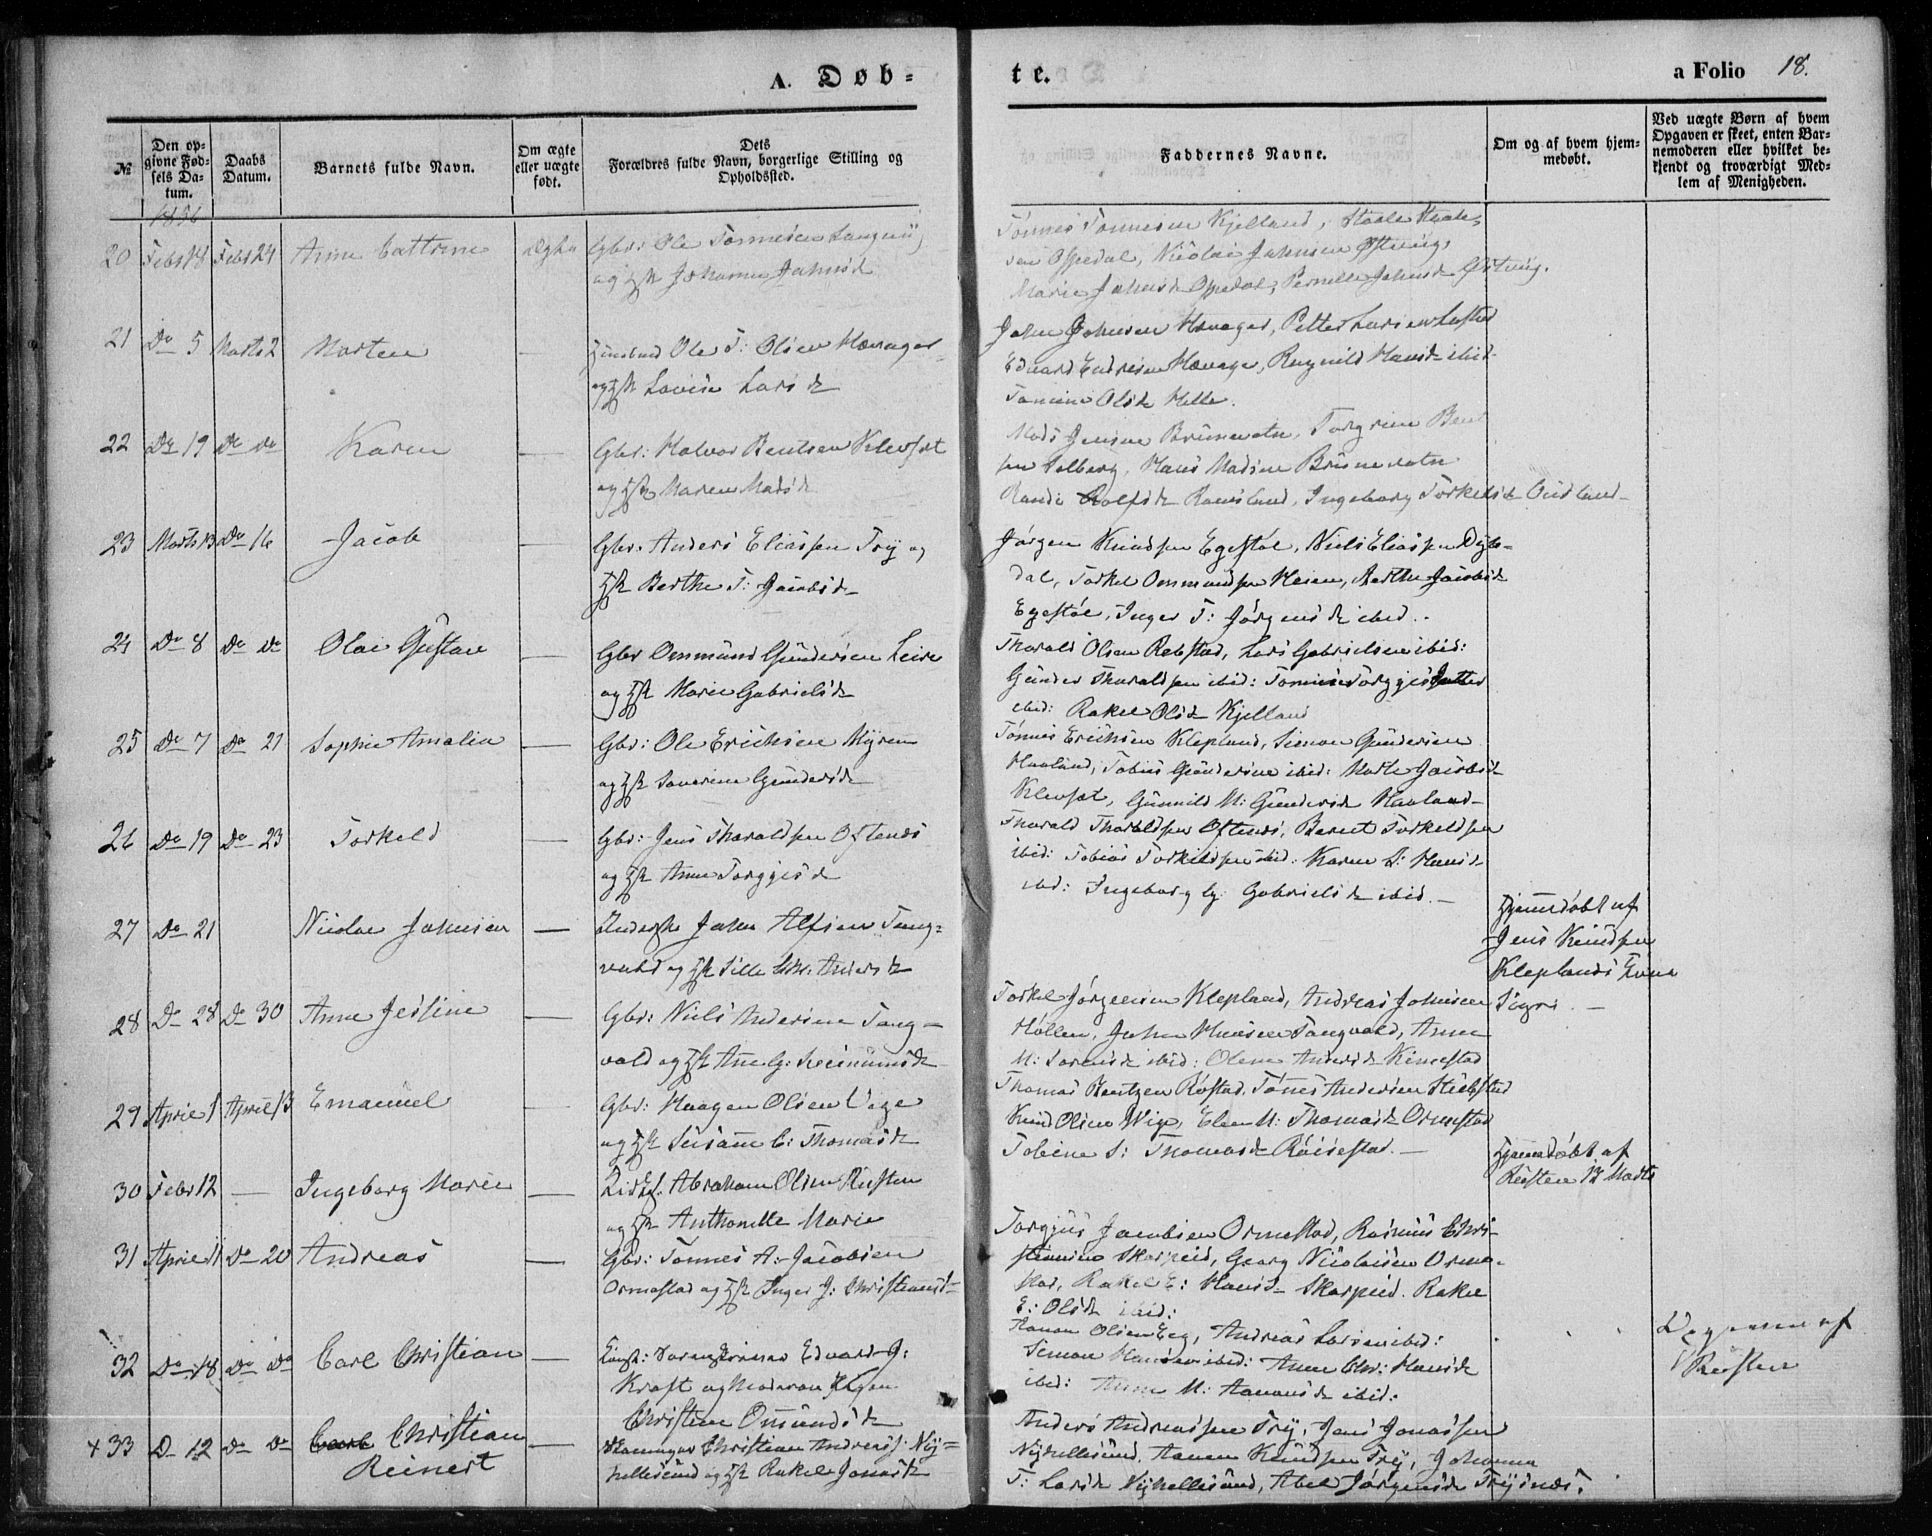 A. Døb-
te.
a Folio 18.
№
Den op-
givne Fød-
sels Da-
tum.
Daabs
Datum.
Barnets fulde Navn.
Om ægte
eller uægte
født.
Dets
Forældres fulde Navn, borgerlige Stilling og
Opholdssted.
Faddernes Navne.
Om og af hvem hjem-
medøbt.
Ved uægte Børn af hvem
Opgaven er skeet, enten Bar-
nemoderen eller hvilket be-
kjendt og troværdigt Med-
lem af Menigheden.
1856
20 Febr 18 Febr 24 Anne Cattrine Ægte Gbr: Ole Tønnesen
og Hst Johanne Johnsd
Tønnes Tønnesen Kjelland, Staale
sen Opedal, Nicolai Johnsen Østvig,
Marie Johnsd Opedal, Pernelle Johnsd Østvig.
21 Do 5 Marts 2 Morten — Huusmd Ole T: Olsen Hævager
og Hst Lovise Larsd
John Johnsen Hævager, Petter Larsen
Edvard Endresen Hævage, Ragnild Hansd ibid
Tomine Olsd Helle.
22 Do 19 Do Do Karen — Gbr: Halvor Bentsen Klevset
og Hst Maren Madsd
Mads Jensen Brunevatn, Torgrim Bent
sen Solberg, Hans Madsen Brunevatn
Randi Rolfsd Ramsland, Ingeborg Torkelsd Oudland
23 Marts 13 Do 16 Jacob — Gbr. Anders Eliassen Try og
Hst Berthe T: Jacobsd
Jørgen Knudsen Egestøl, Niels Eliassen Dybe-
dal, Torkel Ommundsen Høien, Berthe Jacobsd
Egestøl, Inger T: Jørgensd ibid.
24 Do 8 Do Do Olai Gustav — Gbr Ommund Gundersen Leire
og Hst Marie Gabrielsd
Tharald Olsen Rebstad, Lars Gabrielsen ibid:
Gunder Tharaldsen ibid: Tomine Torgjersdatter
ibid: Rakel Olsd Kjelland
25 Do 7 Do 21 Sophie Amalia — Gbr: Ole Erichsen Myren
og Hst Severine Gundersd
Tønnes Erichsen Klepland, Simon Gundersen
Haaland, Tobias Gundersen ibid: Marthe Jacobsd
Klevset, Gunnild M: Gundersd Haaland
26 Do 19 Do 23 Torkeld — Gbr: Jens Tharaldsen Oftenes
og Hst Anne Torgjesd
Tharald Tharaldsen Oftenes, Berent Torkeldsen
ibid: Tobias Torkildsen ibid: Karen S: Hansd
ibd: Ingeborg G: Gabrielsd ibid.
27 Do 21 Nicolai Johnsen — John Alfsen Tang-
vald og Hst Sille Chr: Andersd
Hjemdøbt af
Jens Knudsen
Kleplands Kone
Sigri. —
28 Do 28 Do 30 Anne Jessine — Gbr: Niels Andersen Tang-
vald og Hst Ane G:
Torkel Jørgensen Klepland, Andreas Johnsen
Høllen, John Hansen Tangvald, Anne
M: Sørensd ibid: Olene Andersd Kimestad
29 April 1 April 13 Emanuel — Gbr: Haagen Olsen Vege
og Hst Susanne C: Thomasd
Thomas Bentzen Røstad, Tønes Andersen Stubstad
Knud Olsen Wige, Elen M: Thomasd Ormestad
Tobine S: Thomasd Røisestad. —
30 Febr 12 — Ingeborg Marie — Abraham Olsen Røsten
og Hst Anthonette Marie
Hjemdøbt af
Røsten 12 Marts
31 April 11 Do 20 Andreas — Gbr: Tønnes A: Jacobsen
Ormestad og Hst Inger J: Christensd
Torgjus Jacobsen Ormestad, Rasmus Chri-
stensen Skarpeid, Georg Nicolaisen Orme-
stad, Rakel E: Hansd Skarpeid. Rakel
E: Olsd ibid:
32 Do 18 Do Do Carl Christian — Edvard J:
Kraft og
Christine Omundsd
Aanon Olsen Eeg, Andreas Larsen ibid:
Simon Hansen ibid: Anne Chr: Hansd
ibid: Anne M: Aanonsd ibid:
af
Røsten
+ 33 D 12 Do Do Christian
Reinert
— Christian Andreass: Ny-
hellesund og Hst Rakel Jonasd
Anders Andreassen Try, Jens Jonassen
Nyhellesund, Aanen Knudsen Try, Johanna
T: Larsd Nyhellesund, Abel Jørgensd Trysnes.